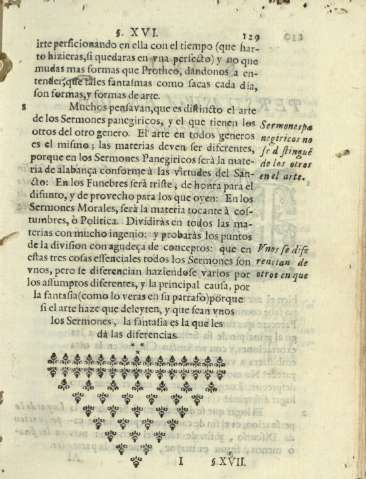 §. XVI.
129
irte perficionando en ella con el tiempo (que har-
to hizieras, si quedaras en vna perfecto) y no que
mudas mas formas que Protheo, dandonos a en-
tender, que tales fantasmas como sacas cada dia,
son formas, y formas de arte.
8 Muchos pensavan, que es distincto el arte
de los Sermones panegiricos, y el que tienen los
otros del otro genero. El arte en todos generos
es el mismo; las materias deven ser diferentes,
porque en los Sermones Panegiricos será la mate-
ria de alabança conforme à las virtudes del San-
cto: En los Funebres será triste, de honra para el
difunto, y de provecho para los que oyen: En los
Sermones Morales, será la materia tocante à cos-
tumbres, ò Politica. Dividiràs en todos las ma-
terias con mucho ingenio: y probaràs los puntos
de la division con agudeça de conceptos: que en
estas tres cosas essenciales todos los Sermones son
vnos, pero se diferencian haziendose varios por
los assumptos diferentes, y la principal causa, por
la fantasia (como lo veras en su parrafo) porque
si el arte haze que deleyten, y que sean vnos
los Sermones, la fantasia es la que les
dá las diferencias.
Sermones pa
negiricos no
se distingue
de los otros
en el arte.
Vnos se dife
rencian de
otros en que
I
§. XVII.